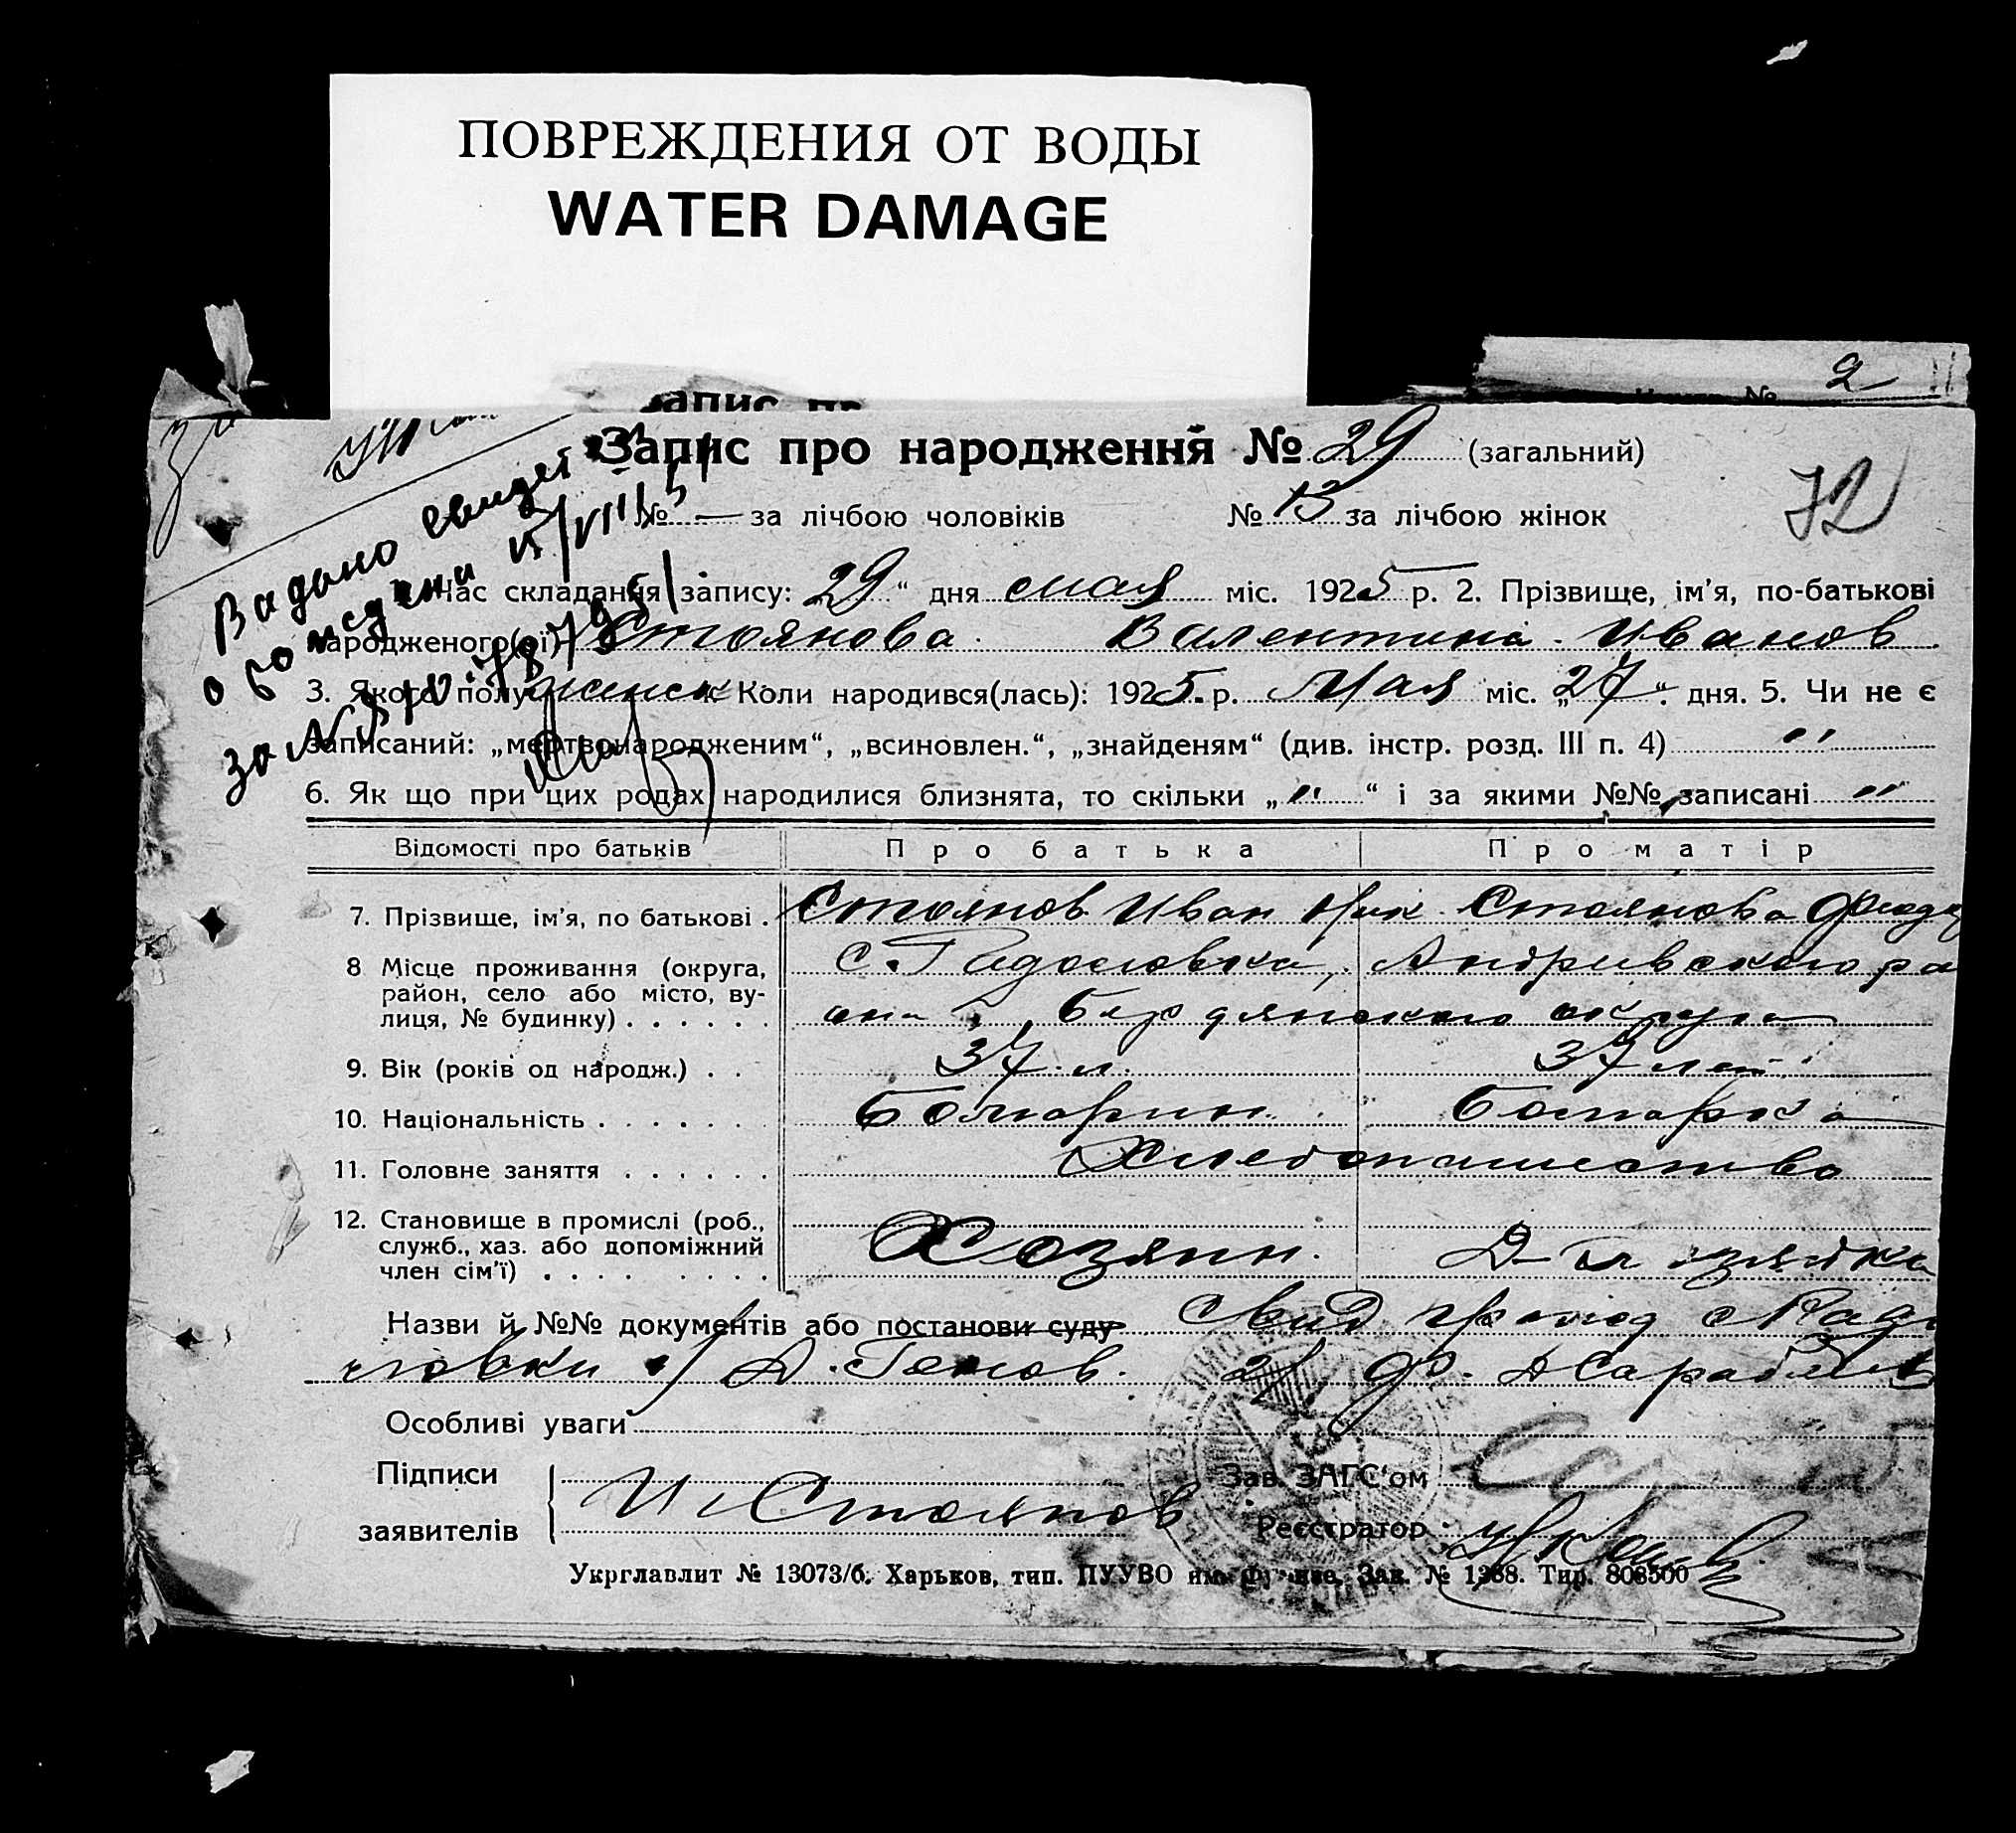 ПОВРЕЖДЕНИЯ ОТ ВОДЫ
WATER DAMAGE
2
Запис про народження № 29 (загальний)
72
№ — за лічбою чоловіків № 13 за лічбою жінок
Видано свидет
о рождении
за №
Час складання запису: „29“ дня мая міс. 1925 р. 2. Прізвище, ім'я, по-батькові
народженого(ої) Стоянова Валентина Иванов
3. Якого полу женск Коли народився(лась): 1925 р. Мая міс. „27“ дня. 5. Чи не є
записаний: „мертвонародженим“, „всиновлен.“, „знайденям“ (див. інстр. розд. III п. 4) "
6. Як що при цих родах народилися близнята, то скільки „ " “ і за якими №№ записані "
Відомості про батьків Про батька Про матір
7. Прізвище, ім'я, по батькові . Стоянов Иван Ник Стоянова
8 Місце проживання (округа, район, село або місто, вулиця, № будинку) . . . . . . с. Андриевского ра
она, Бердянского округа
9. Вік (років од народж.) . . 37 л. 37 лет
10. Національність . . . . . . . Болгарин Болгарка
11. Головне заняття . . . . . . Хлебопашество
12. Становище в промислі (роб., служб., хаз. або допоміжний член сім'ї) . . . . . . . . Хозяин.
Назви й №№ документів або постанови суду Свид
1/ Д. 2/
Особливі уваги
Підписи заявителів И Стоянов
Зав. ЗАГС'ом
Реєстратор
Укрглавлит № 13073/б. Харьков, тип. ПУУВО им. Фрунзе. Зак. № 1368. Тир. 808500